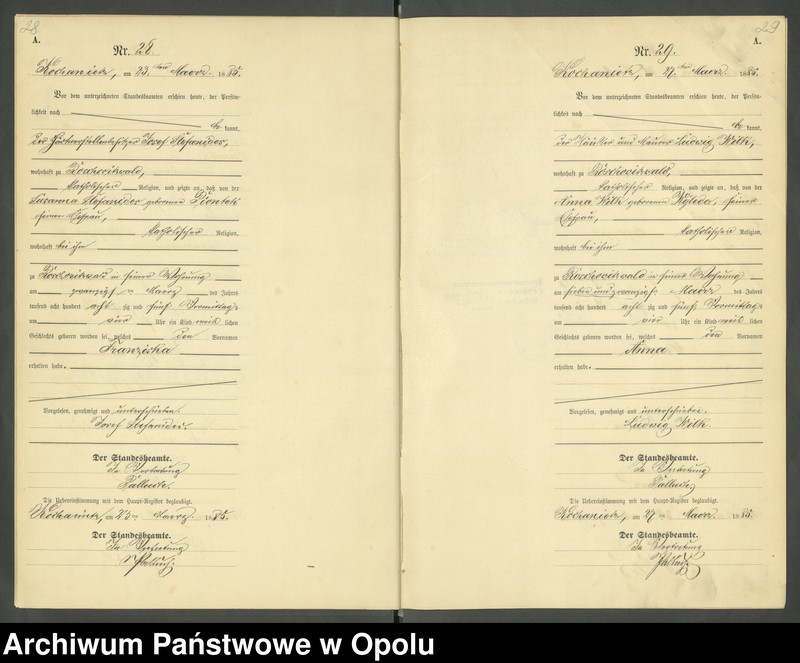 28
A.
Nr. 28.
Kochanietz, am 23ten Maerz 1885.
Vor dem unterzeichneten Standesbeamten erschien heute, der Persön-
lichkeit nach
be kannt,
der Gärtnerstellenbesitzer Josef Stefanides,
wohnhaft zu
katholischer Religion, und zeigte an, daß von der
Susanna Stefanides geborenen Piontek
seiner Ehefrau,
katholischer Religion,
wohnhaft bei ihm
zu in seiner Wohnung
am Maerz des Jahres
tausend acht hundert acht zig und fünf Vormittag
um vier Uhr ein Kind weib lichen
Geschlechts geboren worden sei, welches den Vornamen
Franziska
erhalten habe.
Vorgelesen, genehmigt und unterschrieben.
Josef Stefanides.
Der Standesbeamte.
In Vertretung
Die Uebereinstimmung mit dem Haupt-Register beglaubigt.
Kochanietz, am 23ten Maerz 1885.
Der Standesbeamte.
In Vertretung
29
A.
Nr. 29.
Kochanietz, am 27ten Maerz 1885.
Vor dem unterzeichneten Standesbeamten erschien heute, der Persön-
lichkeit nach
be kannt,
der Häusler und Maurer Ludwig Wilk,
wohnhaft zu
katholischer Religion, und zeigte an, daß von der
Anna Wilk geborenen seiner
Ehefrau,
katholischer Religion,
wohnhaft bei ihm
zu in seiner Wohnung
am sieben und zwanzigsten Maerz des Jahres
tausend acht hundert acht zig und fünf Vormittag
um vier Uhr ein Kind weib lichen
Geschlechts geboren worden sei, welches den Vornamen
Anna
erhalten habe.
Vorgelesen, genehmigt und unterschrieben.
Ludwig Wilk.
Der Standesbeamte.
In Vertretung
Die Uebereinstimmung mit dem Haupt-Register beglaubigt.
Kochanietz, am 27ten Maerz 1885.
Der Standesbeamte.
In Vertretung
Archiwum Państwowe w Opolu